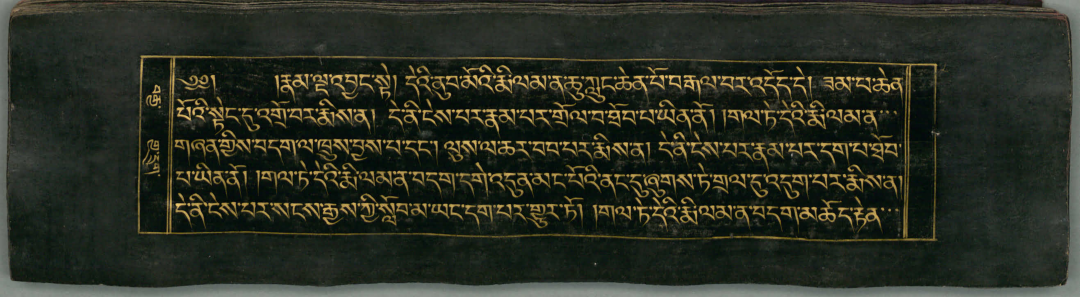 ༄༅། །རྣམ་ལྔ་འབྱུང་སྟེ། དེའི་ནུབ་མོའི་རྨི་ལམ་ན་ཆུ་ཀླུང་ཆེན་པོ་བརྒལ་བར་འདོད་དེ། ཟམ་པ་ཆེན་
པོའི་སྟེང་དུ་འགྲོ་བར་རྨིས་ན། དེ་ནི་ངེས་པར་རྣམ་པར་གྲོལ་བ་ཐོབ་པ་ཡིན་ནོ། །གལ་ཏེ་དེའི་རྨི་ལམ་ན་
གཞན་གྱིས་བདག་ལ་ཁྲུས་བྱས་པ་དང་། ལུས་ལ་ཆར་བབ་པར་རྨིས་ན། དེ་ནི་ངེས་པར་རྣམ་པར་དག་པ་ཐོབ་
པ་ཡིན་ནོ། །གལ་ཏེ་དེའི་རྨི་ལམ་ན་བདག་དགེ་འདུན་མང་པོའི་ནང་དུ་ཞུགས་ཏེ་གྲལ་དུ་འདུག་པར་རྨིས་ན།
དེ་ནི་ངེས་པར་སངས་རྒྱས་ཀྱི་སློབ་མ་ཡང་དག་པར་གྱུར་ཏོ། །གལ་ཏེ་དེའི་རྨི་ལམ་ན་བདག་མཆོད་རྟེན་